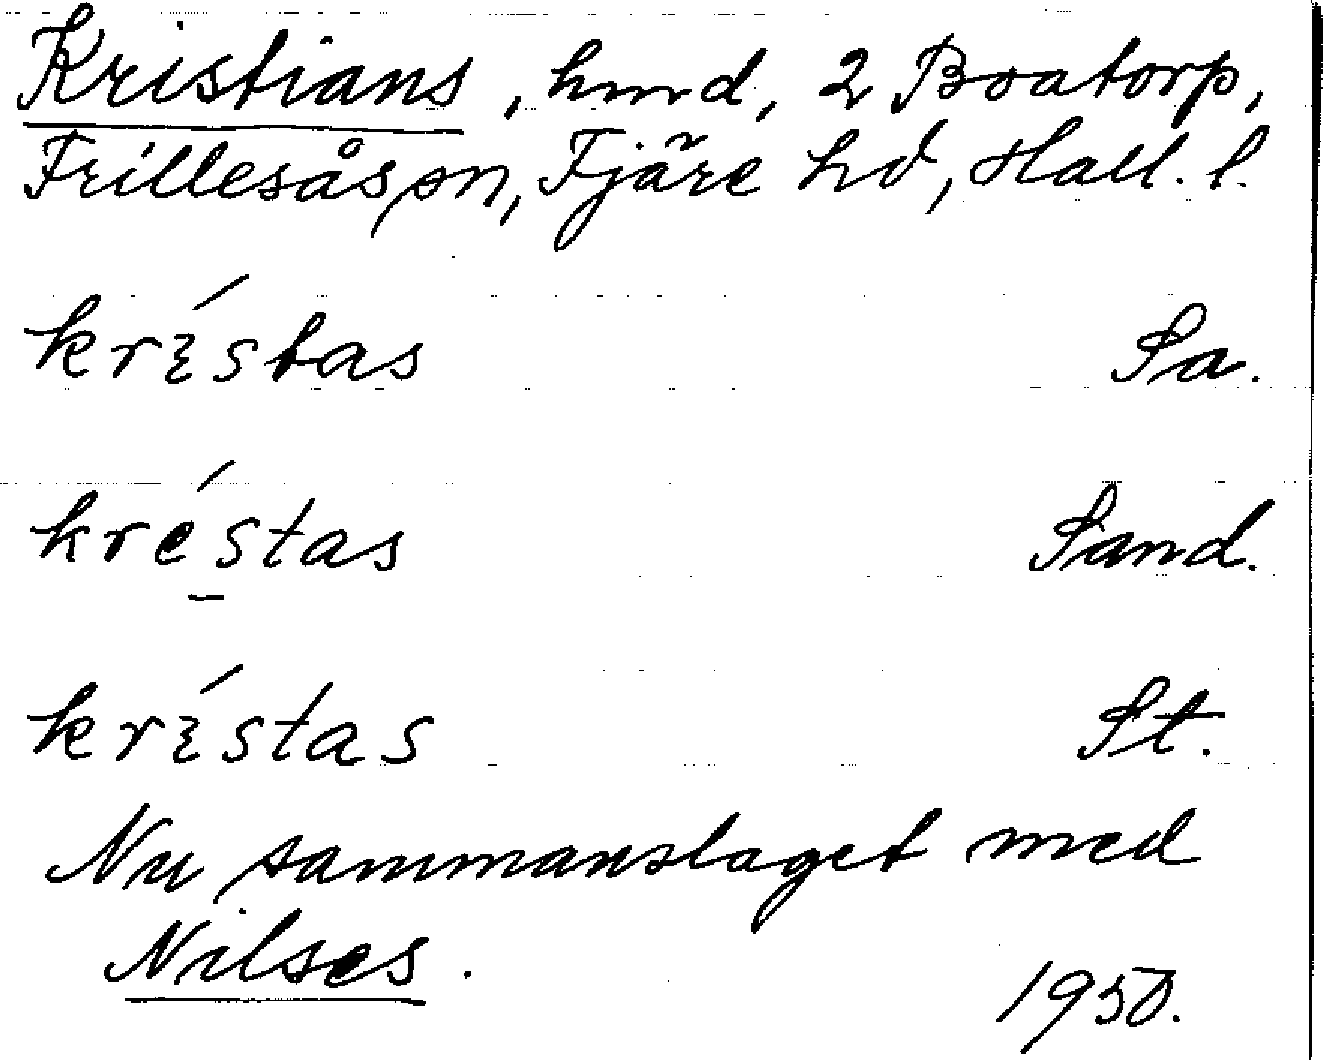 Kristians, hmd, 2 Boatorp,
Frillesås sn, Fjäre hd, Hall. l.
krɩ́stas Sa.
kré̱stas Sand.
krɩ́stas St.
Nu sammanslaget med
Nilses.
1950.